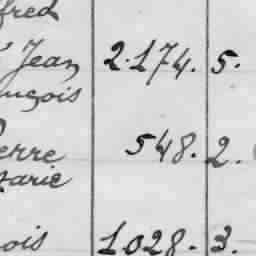 fred
Jean 2.174. 5.
nçois
Pierre 548. 2.
Marie
ois 1028. 3.